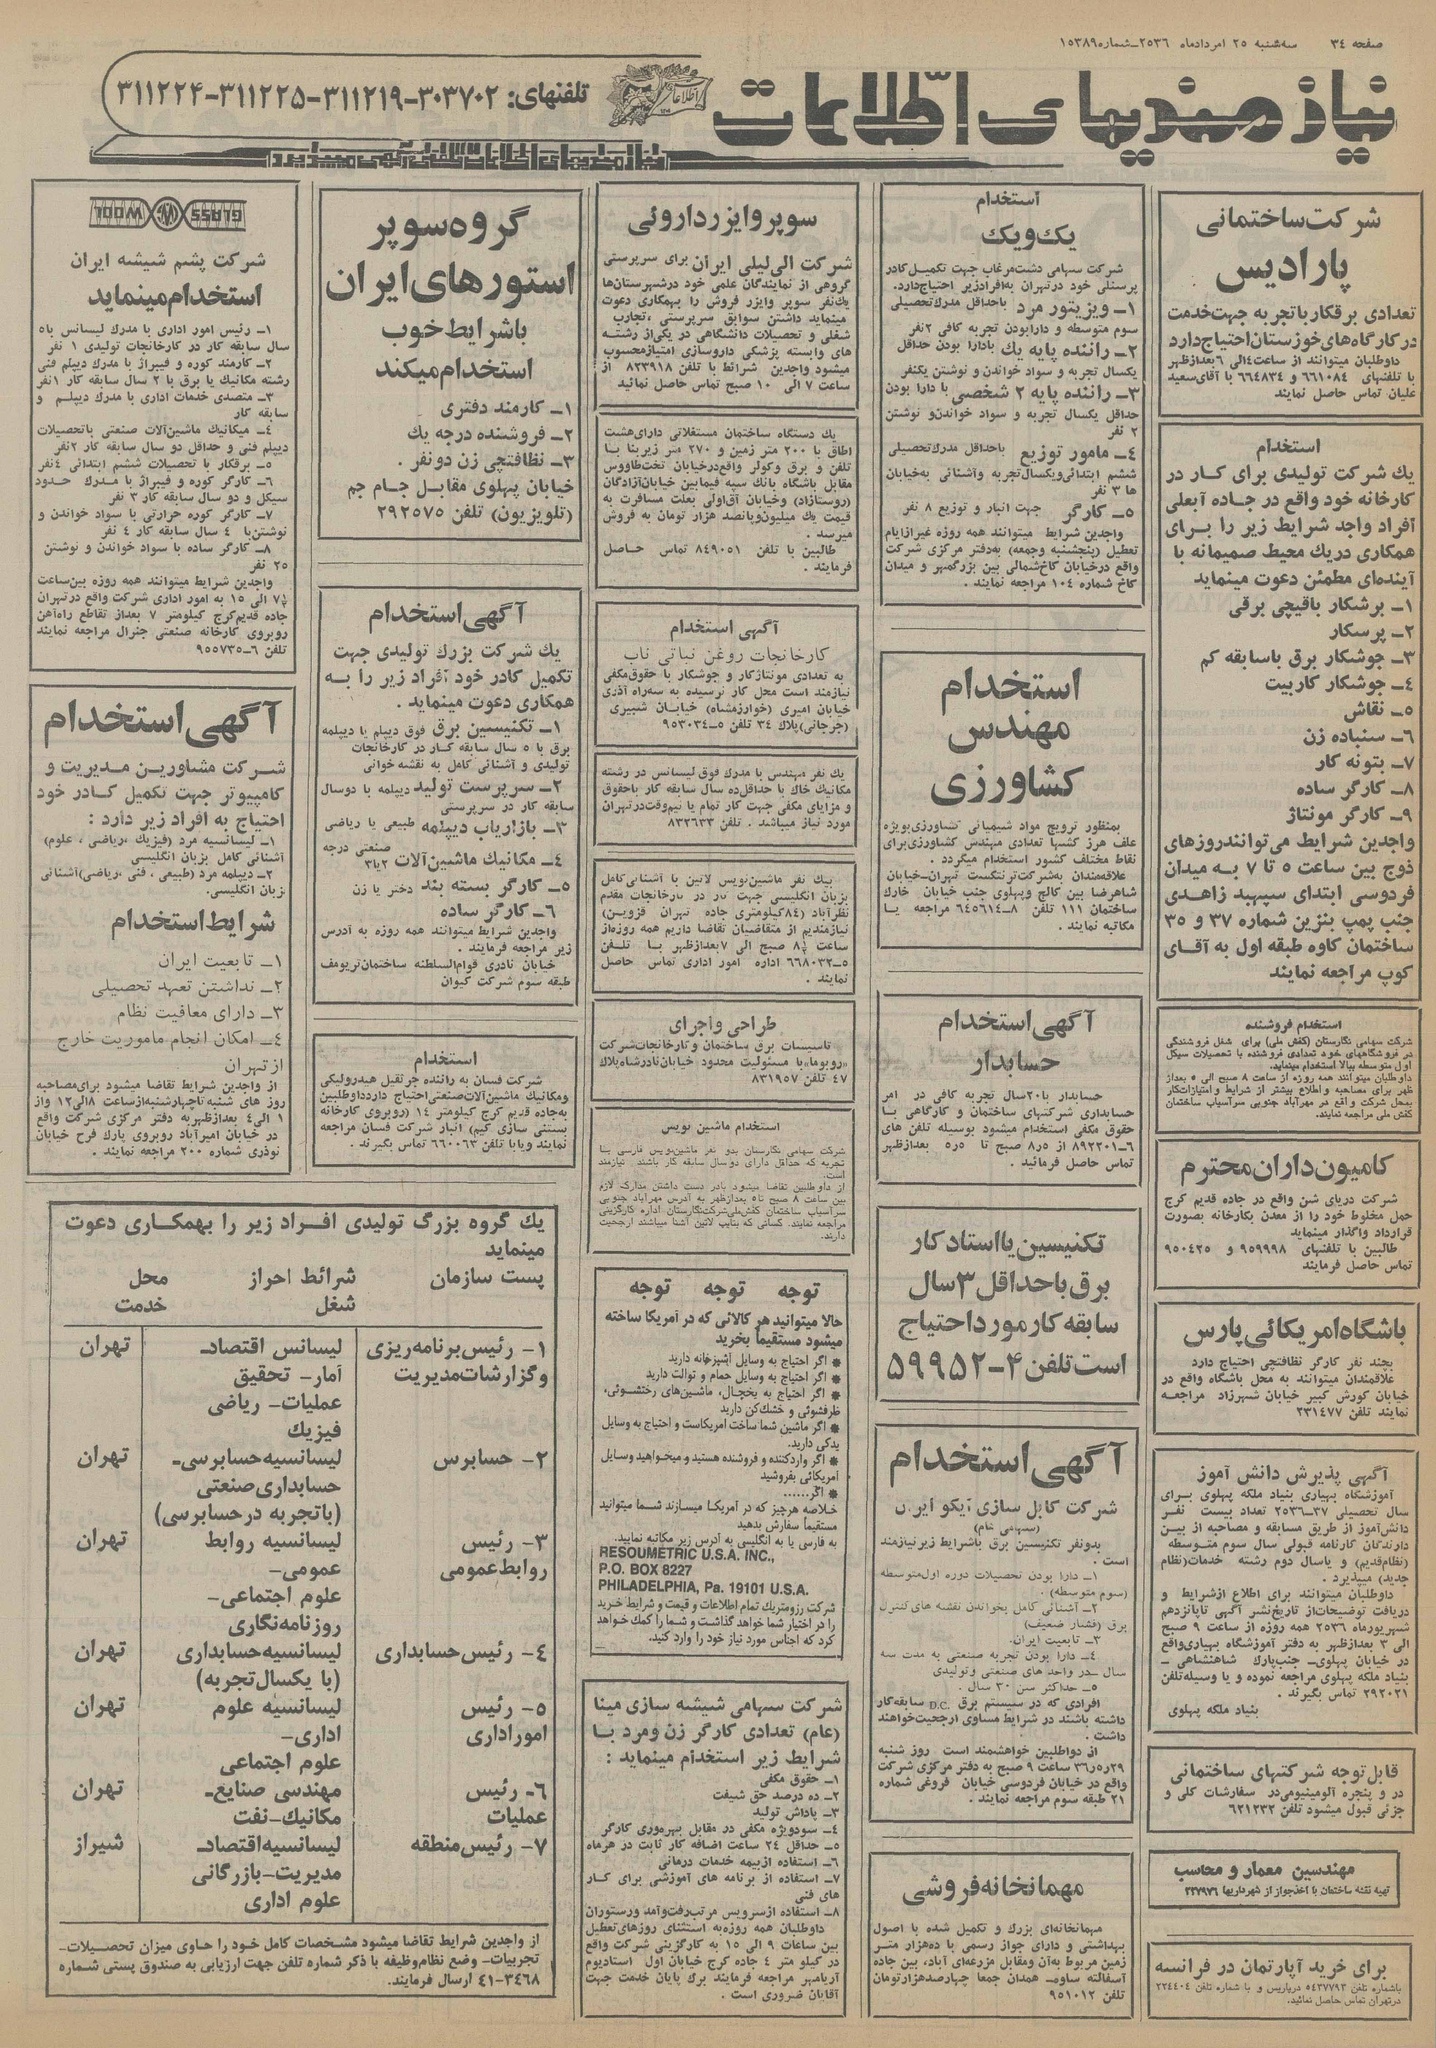 صفحه ۳۴
سه‌شنبه ۲۵ امردادماه ۲۵۳۶-شماره ۱۵۳۸۹
نیازمندیهای اطلاعات
تلفنهای: ۳۰۳۷۰۲-۳۱۱۲۱۹-۳۱۱۲۲۵-۳۱۱۲۲۴
نیازمندیهای اطلاعات تلفنی آگهی میپذیرد
شرکت ساختمانی
پارادیس
تعدادی برقکار با تجربه جهت خدمت
در کارگاه‌های خوزستان احتیاج دارد
داوطلبان میتوانند از ساعت ۴ الی ۶ بعدازظهر
با تلفنهای ۶۶۱۰۸۴ و ۶۶۴۸۳۴ با آقای سعید
علیان تماس حاصل نمایند
استخدام
یك شرکت تولیدی برای کار در
کارخانه خود واقع در جاده آبعلی
افراد واجد شرایط زیر را برای
همکاری دریك محیط صمیمانه با
آینده‌ای مطمئن دعوت مینماید
۱- برشکار باقیچی برقی
۲- پرسکار
۳- جوشکار برق باسابقه کم
۴- جوشکار کاربیت
۵- نقاش
۶- سنباده زن
۷- بتونه کار
۸- کارگر ساده
۹- کارگر مونتاژ
واجدین شرایط می‌توانند روزهای
زوج بین ساعت ۵ تا ۷ به میدان
فردوسی ابتدای سپهبد زاهدی
جنب پمپ بنزین شماره ۳۷ و ۳۵
ساختمان کاوه طبقه اول به آقای
کوپ مراجعه نمایند
استخدام فروشنده
شرکت سهامی نگارستان (کفش ملی) برای شغل فروشندگی
در فروشگاههای خود تعدادی فروشنده با تحصیلات سیکل
اول متوسطه ببالا استخدام مینماید.
داوطلبان میتوانند همه روزه از ساعت ۸ صبح الی ۵ بعداز
ظهر برای مصاحبه و اطلاع بیشتر از شرایط و امتیازات کار
بمحل شرکت واقع در مهرآباد جنوبی سرآسیاب ساختمان
کفش ملی مراجعه نمایند.
کامیون داران محترم
شرکت دریای شن واقع در جاده قدیم کرج
حمل مخلوط خود را از معدن بکارخانه بصورت
قرارداد واگذار مینماید
طالبین با تلفنهای ۹۵۹۹۹۸ و ۹۵۰۴۲۵
تماس حاصل فرمایند
باشگاه امریکائی پارس
بچند نفر کارگر نظافتچی احتیاج دارد
علاقمندان میتوانند به محل باشگاه واقع در
خیابان کورش کبیر خیابان شهرزاد مراجعه
نمایند تلفن ۲۳۱۴۷۷
آگهی پذیرش دانش آموز
آموزشگاه بهیاری بنیاد ملکه پهلوی برای
سال تحصیلی ۳۷-۲۵۳۶ تعداد بیست نفر
دانش‌آموز از طریق مسابقه و مصاحبه از بین
دارندگان کارنامه قبولی سال سوم متوسطه
(نظام‌قدیم) و یاسال دوم رشته خدمات(نظام
جدید) میپذیرد.
داوطلبان میتوانند برای اطلاع ازشرایط و
دریافت توضیحات‌از تاریخ‌نشر آگهی تاپانزدهم
شهریورماه ۲۵۳۶ همه روزه از ساعت ۹ صبح
الی ۳ بعدازظهر به دفتر آموزشگاه بهیاری‌واقع
در خیابان پهلوی- جنب‌پارك شاهنشاهی -
بنیاد ملکه پهلوی مراجعه نموده و یا وسیله‌تلفن
۲۹۲۰۲۱ تماس بگیرند .
بنیاد ملکه پهلوی
قابل توجه شرکتهای ساختمانی
در و پنجره آلومینیومی‌در سفارشات کلی و
جزئی قبول میشود تلفن ۶۲۱۲۳۲
مهندسین معمار و محاسب
تهیه نقشه ساختمان با اخذجواز از شهرداریها ۲۲۷۹۷۶
برای خرید آپارتمان در فرانسه
باشماره تلفن ۵۴۳۷۷۹۳ درپاریس و با شماره تلفن ۲۲۴۴۰۴
درتهران تماس حاصل نمائید.
استخدام
یك و یك
شرکت سهامی دشت‌مرغاب جهت تکمیل‌کادر
پرسنلی خود درتهران به‌افرادزیر احتیاج‌دارد.
۱- ویزیتور مرد باحداقل مدرك‌تحصیلی
سوم متوسطه و دارابودن تجربه کافی ۲نفر
۲- راننده پایه یك بادارا بودن حداقل
یکسال تجربه و سواد خواندن و نوشتن یکنفر
۳- راننده پایه ۲ شخصی با دارا بودن
حداقل یکسال تجربه و سواد خواندن‌و نوشتن
۲ نفر
۴- مامور توزیع باحداقل مدرك‌تحصیلی
ششم ابتدائی‌ویکسال‌تجربه وآشنائی به‌خیابان
ها ۳ نفر
۵- کارگر جهت انبار و توزیع ۸ نفر
واجدین شرایط میتوانند همه روزه غیرازایام
تعطیل (پنجشنبه وجمعه) به‌دفتر مرکزی شرکت
واقع درخیابان کاخ‌شمالی بین بزرگمهر و میدان
کاخ شماره ۱۰۴ مراجعه نمایند .
استخدام
مهندس
کشاورزی
بمنظور ترویج مواد شیمیائی کشاورزی‌بویژه
علف هرز کشها تعدادی مهندس کشاورزی‌برای
نقاط مختلف کشور استخدام میگردد .
علاقه‌مندان به‌شرکت‌ترنتگست تهران-خیابان
شاهرضا بین کالج وپهلوی جنب خیابان خارك
ساختمان ۱۱۱ تلفن ۸-۶۴۵۶۱۴ مراجعه یا
مکاتبه نمایند .
آگهی استخدام
حسابدار
حسابدار با۲۰سال تجربه کافی در امر
حسابداری شرکتهای ساختمان و کارگاهی با
حقوق مکفی استخدام میشود بوسیله تلفن های
۶-۸۹۲۲۰۱ از ۸٫۵ صبح تا ۵٫۵ بعدازظهر
تماس حاصل فرمائید .
تکنیسین یا استادکار
برق با حداقل ۳ سال
سابقه کار مورد احتیاج
است تلفن ۴-۵۹۹۵۲
آگهی استخدام
شرکت کابل سازی آیکو ایران
(سهامی عام)
بدونفر تکنیسین برق باشرایط زیرنیازمند
است .
۱- دارا بودن تحصیلات دوره اول‌متوسطه
(سوم متوسطه) .
۲- آشنائی کامل بخواندن نقشه های‌کنترل
برق (فشار ضعیف)
۳- تابعیت ایران.
۴- دارا بودن تجربه صنعتی به مدت سه
سال -در واحد های صنعتی وتولیدی
۵- حداکثر سن ۳۰ سال .
افرادی که در سیستم برق D.C سابقه‌کار
داشته باشند در شرایط مساوی ارجحیت‌خواهند
داشت .
از دواطلبین خواهشمند است روز شنبه
۳۶٫۵٫۲۹ ساعت ۹ صبح به دفتر مرکزی شرکت
واقع در خیابان فردوسی خیابان فروغی شماره
۲۱ طبقه سوم مراجعه نمایند .
مهمانخانه فروشی
مهمانخانه‌ای بزرك و تکمیل شده با اصول
بهداشتی و دارای جواز رسمی با ده‌هزار متر
زمین مربوط به‌آن ومقابل مزرعه‌ای آباد، بین جاده
آسفالته ساوه- همدان جمعا چهارصدهزارتومان
تلفن ۹۵۱۰۱۲
سوپر وایزر داروئی
شرکت الی‌لیلی ایران برای سرپرستی
گروهی از نمایندگان علمی خود درشهرستان‌ها
یك‌نفر سوپر وایزر فروش را بهمکاری دعوت
مینماید داشتن سوابق سرپرستی ،تجارب
شغلی و تحصیلات دانشگاهی در یکی‌از رشته
های وابسته پزشکی داروسازی امتیازمحسوب
میشود واجدین شرائط با تلفن ۸۲۳۹۱۸ از
ساعت ۷ الی ۱۰ صبح تماس حاصل نمائید
یك دستگاه ساختمان مستغلاتی دارای‌هشت
اطاق با ۲۰۰ متر زمین و ۲۷۰ متر زیربنا با
تلفن و برق وکولر واقع‌درخیابان تخت‌طاووس
مقابل باشگاه بانك سپه فیمابین خیابان‌آزادگان
(روستازاد) وخیابان آق‌اولی بعلت مسافرت به
قیمت یك میلیون‌وپانصد هزار تومان به فروش
میرسد .
طالبین با تلفن ۸۴۹۰۵۱ تماس حاصل
فرمایند .
آگهی استخدام
کارخانجات روغن نباتی ناب
به تعدادی مونتاژکار و جوشکار با حقوق‌مکفی
نیازمند است محل کار نرسیده به سه‌راه آذری
خیابان امیری (خوارزمشاه) خیابان شبیری
(جرجانی)پلاك ۳۴ تلفن ۵-۹۵۳۰۳۴
یك نفر مهندس با مدرك فوق لیسانس در رشته
مکانیك خاك با حداقل‌ده سال سابقه کار باحقوق
و مزایای مکفی جهت کار تمام یا نیم‌وقت‌درتهران
مورد نیاز میباشد . تلفن ۸۳۲۶۳۳
بیك نفر ماشین‌نویس لاتین با آشنائی‌کامل
بزبان انگلیسی جهت کار در کارخانجات مقدم
نظرآباد (۸۴کیلومتری جاده تهران قزوین)
نیازمندیم از متقاضیان تقاضا داریم همه روزه‌از
ساعت ½۸ صبح الی ۷بعدازظهر با تلفن
۵-۶۶۸۰۳۲ اداره امور اداری تماس حاصل
نمایند .
طراحی واجرای
تاسیسات برق ساختمان وکارخانجات‌شرکت
«روبوما»با مسئولیت محدود خیابان‌نادرشاه‌پلاك
۴۷ تلفن ۸۳۱۹۵۷
استخدام ماشین نویس
شرکت سهامی نگارستان بدو نفر ماشین‌نویس فارسی با
تجربه که حداقل دارای دوسال سابقه کار باشند . نیازمند
است.
از داوطلبین تقاضا میشود بادر دست داشتن مدارك لازم
بین ساعت ۸ صبح تا۵ بعدازظهر به آدرس مهرآباد جنوبی
سرآسیاب ساختمان کفش‌ملی‌شرکت‌نگارستان اداره کارگزینی
مراجعه نمایند. کسانی که بتایپ لاتین آشنا میباشند ارجحیت
دارند.
توجه توجه توجه
حالا میتوانید هر کالائی که در آمریکا ساخته
میشود مستقیماً بخرید
* اگر احتیاج به وسایل آشپزخانه دارید
* اگر احتیاج به وسایل حمام و توالت دارید
* اگر احتیاج به یخچال، ماشین‌های رختشوئی،
ظرفشوئی و خشك‌کن دارید
* اگر ماشین شما ساخت امریکاست و احتیاج به وسایل
یدکی دارید.
* اگر واردکننده و فروشنده هستید و میخواهید وسایل
آمریکائی بفروشید
* اگر......
خلاصه هرچیز که در آمریکا میسازند شما میتوانید
مستقیماً سفارش بدهید
به فارسی یا به انگلیسی به آدرس زیر مکاتبه نمایید.
RESOUMETRIC U.S.A. INC.,
P.O. BOX 8227
PHILADELPHIA, Pa. 19101 U.S.A.
شرکت رزومتریك تمام اطلاعات و قیمت و شرایط خرید
را در اختیار شما خواهد گذاشت و شما را کمك خواهد
کرد که اجناس مورد نیاز خود را وارد کنید.
شرکت سهامی شیشه سازی مینا
(عام) تعدادی کارگر زن ومرد با
شرایط زیر استخدام مینماید :
۱- حقوق مکفی
۲- ده درصد حق شیفت
۳- پاداش تولید
۴- سودویژه مکفی در مقابل بهره‌وری کارگر
۵- حداقل ۲۴ ساعت اضافه کار ثابت در هرماه
۶- استفاده ازبیمه خدمات درمانی
۷- استفاده از برنامه های آموزشی برای کار
های فنی
۸- استفاده ازسرویس مرتب‌رفت‌وآمد ورستوران
داوطلبان همه روزه‌به استثنای روزهای‌تعطیل
بین ساعات ۹ الی ۱۵ به کارگزینی شرکت واقع
در کیلو متر ۴ جاده کرج خیابان اول استادیوم
آریامهر مراجعه فرمایند برك پایان خدمت جهت
آقایان ضروری است .
گروه سوپر
استورهای ایران
باشرایط خوب
استخدام میکند
۱- کارمند دفتری
۲- فروشنده درجه یك
۳- نظافتچی زن دو نفر .
خیابان پهلوی مقابل جام جم
(تلویزیون) تلفن ۲۹۲۵۷۵
آگهی استخدام
یك شرکت بزرك تولیدی جهت
تکمیل کادر خود افراد زیر را به
همکاری دعوت مینماید .
۱- تکنیسین برق فوق دیپلم یا دیپلمه
برق با ۵ سال سابقه کار در کارخانجات
تولیدی و آشنائی کامل به نقشه خوانی
۲- سرپرست تولید دیپلمه با دوسال
سابقه کار در سرپرستی
۳- بازاریاب دیپلمه طبیعی یا ریاضی
۴- مکانیك ماشین‌آلات صنعتی درجه ۲یا۳
۵- کارگر بسته بند دختر یا زن
۶- کارگر ساده
واجدین شرایط میتوانند همه روزه به آدرس
زیر مراجعه فرمایند .
خیابان نادری قوام‌السلطنه ساختمان‌تریومف
طبقه سوم شرکت کیوان
استخدام
شرکت فسان به راننده جرثقیل هیدرولیکی
ومکانیك ماشین‌آلات‌صنعتی احتیاج دارد‌داوطلبین
به‌جاده قدیم کرج کیلومتر ۱۴ (روبروی کارخانه
بستنی سازی کیم) انبار شرکت فسان مراجعه
نمایند ویابا تلفن ۶۶۰۰۶۳ تماس بگیرند .
GLASS WOOL
شرکت پشم شیشه ایران
استخدام مینماید
۱- رئیس امور اداری با مدرك لیسانس با۵
سال سابقه کار در کارخانجات تولیدی ۱ نفر
۲- کارمند کوره و فیبراژ با مدرك دیپلم فنی
رشته مکانیك یا برق با ۲ سال سابقه کار ۱نفر
۳- متصدی خدمات اداری با مدرك دیپلم و
سابقه کار
۴- میکانیك ماشین‌آلات صنعتی باتحصیلات
دیپلم فنی و حداقل دو سال سابقه کار ۲نفر
۵- برقکار با تحصیلات ششم ابتدائی ۴نفر
۶- کارگر کوره و فیبراژ با مدرك حدود
سیکل و دو سال سابقه کار ۳ نفر
۷- کارگر کوره حرارتی با سواد خواندن و
نوشتن‌با ۴ سال سابقه کار ۴ نفر
۸- کارگر ساده با سواد خواندن و نوشتن
۲۵ نفر
واجدین شرایط میتوانند همه روزه بین‌ساعت
½۷ الی ۱۵ به امور اداری شرکت واقع درتهران
جاده قدیم‌کرج کیلومتر ۷ بعداز تقاطع راه‌آهن
روبروی کارخانه صنعتی جنرال مراجعه نمایند
تلفن ۶-۹۵۵۷۳۵
آگهی استخدام
شرکت مشاورین مدیریت و
کامپیوتر جهت تکمیل کادر خود
احتیاج به افراد زیر دارد :
۱- لیسانسیه مرد (فیزیك ،ریاضی ، علوم)
آشنائی کامل بزبان انگلیسی
۲- دیپلمه مرد (طبیعی ، فنی ،ریاضی)آشنائی
زبان انگلیسی.
شرایط استخدام
۱- تابعیت ایران
۲- نداشتن تعهد تحصیلی
۳- دارای معافیت نظام
۴- امکان انجام ماموریت خارج
از تهران
از واجدین شرایط تقاضا میشود برای‌مصاحبه
روز های شنبه تاچهارشنبه‌ازساعت ۸الی۱۲ واز
۱ الی۴ بعدازظهربه دفتر مرکزی شرکت واقع
در خیابان امیرآباد روبروی پارك فرح خیابان
نوذری شماره ۲۰۰ مراجعه نمایند .
یك گروه بزرگ تولیدی افراد زیر را بهمکاری دعوت
مینماید
پست سازمان شرائط احراز شغل محل خدمت
۱- رئیس برنامه‌ریزی لیسانس اقتصاد- تهران
وگزارشات‌مدیریت آمار- تحقیق
عملیات- ریاضی
فیزیك
۲- حسابرس لیسانسیه حسابرسی- تهران
حسابداری صنعتی
(باتجربه درحسابرسی)
۳- رئیس لیسانسیه روابط تهران
روابط عمومی عمومی-
علوم اجتماعی-
روزنامه‌نگاری
۴- رئیس حسابداری لیسانسیه‌حسابداری تهران
(با یکسال‌تجربه)
۵- رئیس لیسانسیه علوم تهران
اموراداری اداری-
علوم اجتماعی
۶- رئیس مهندسی صنایع- تهران
عملیات مکانیك-نفت
۷- رئیس منطقه لیسانسیه‌اقتصاد- شیراز
مدیریت-بازرگانی
علوم اداری
از واجدین شرایط تقاضا میشود مشخصات کامل خود را حاوی میزان تحصیلات-
تجربیات- وضع نظام‌وظیفه با ذکر شماره تلفن جهت ارزیابی به صندوق پستی شماره
۴۱-۳۴۶۸ ارسال فرمایند.